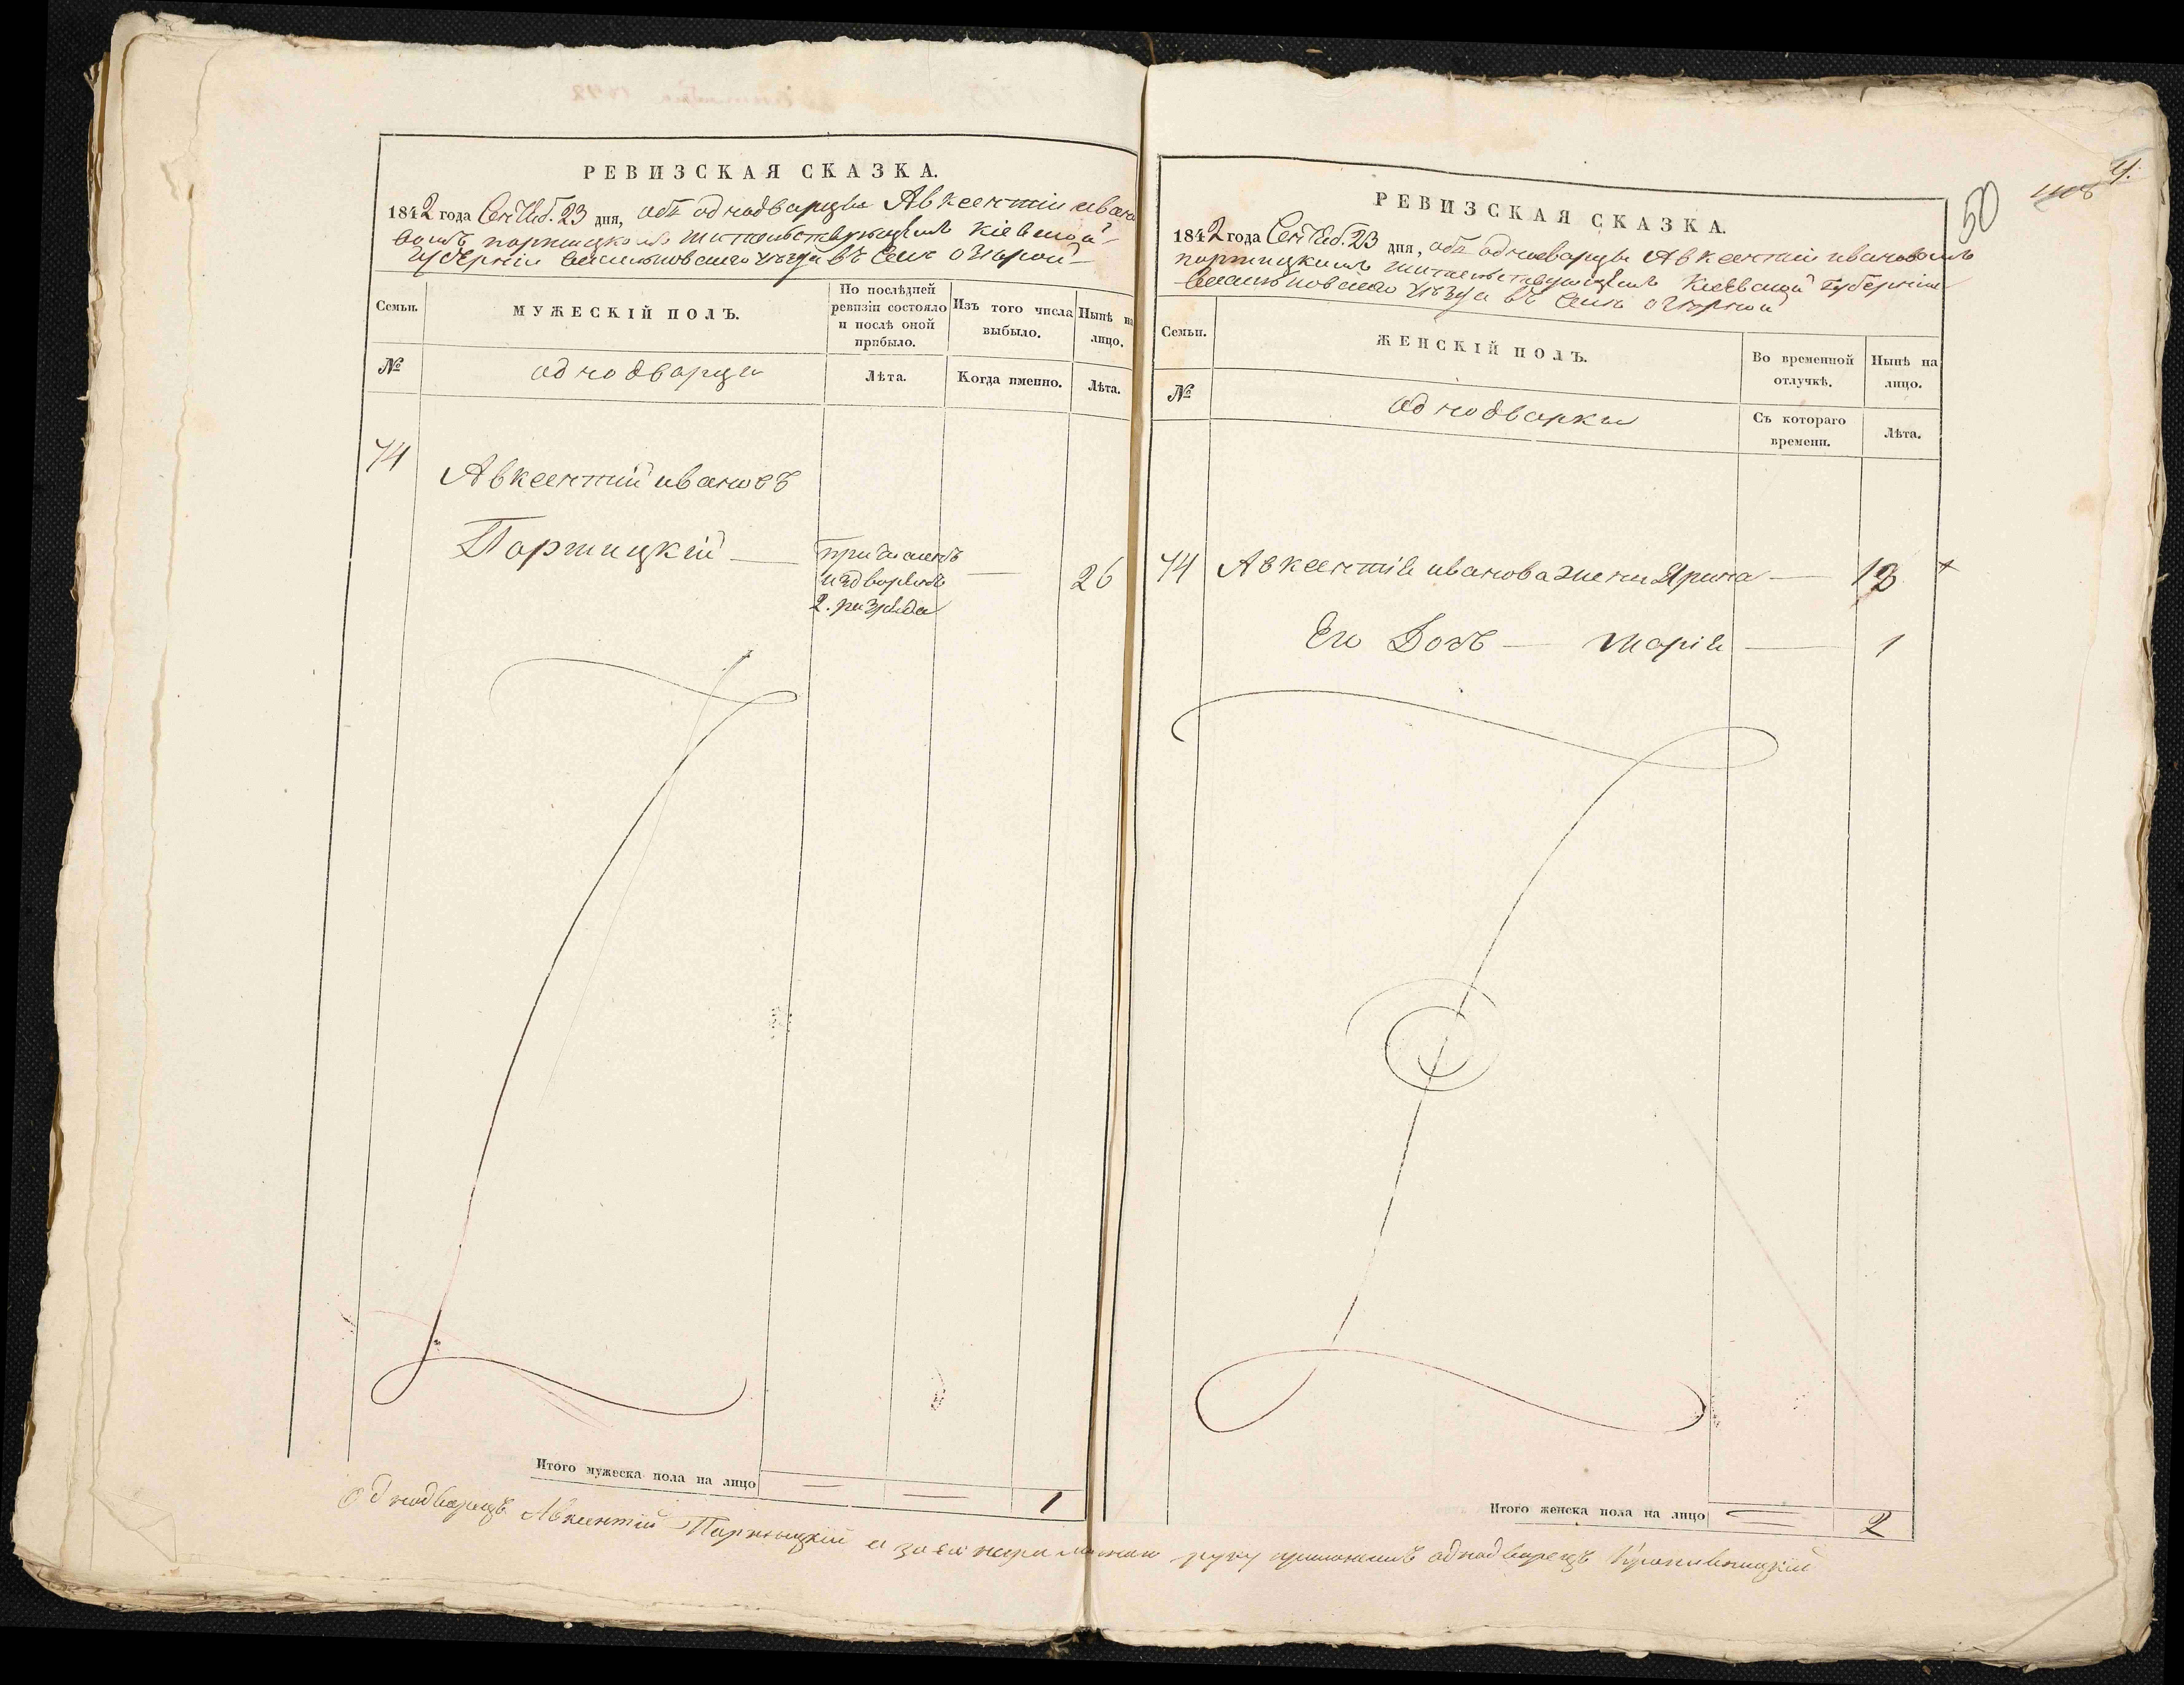 РЕВИЗСКАЯ СКАЗКА.
1842 года Сентяб. 23 дня, объ однодворцѣ Авксентіи ивано
вомъ портицкомъ жительствующемъ Кіевской
Губерніи Васильковскаго уѣзда въ селѣ
Семьи.
МУЖЕСКІЙ ПОЛЪ.
По послѣдней ревизіи состояло и послѣ оной прибыло.
Изъ того числа выбыло.
Нынѣ на лицо.
№
однодворци
Лѣта.
Когда именно.
Лѣта.
74
Авксентий ивановъ
Портицкій
26
причисленъ
изъ дворянъ
2. разряда
Итого мужеска пола на лицо
1
РЕВИЗСКАЯ СКАЗКА.
50
1842 года Сентяб. 23 дня, объ однодворцѣ Авксентий ивановомъ
портицкимъ жительствующемъ Кіевской Губерніи
Васильковскаго уѣзда въ селѣ
Семьи.
ЖЕНСКІЙ ПОЛЪ.
Во временной отлучкѣ.
Нынѣ на лицо.
№
однодворки
Съ котораго времени.
Лѣта.
74 Авксентія иванова жена Ярина
Его Дочь — Марія — 1
Итого женска пола на лицо
2
Однодворецъ Авксентий а за его неграмотного руку приложилъ однодворецъ Кропивницкій